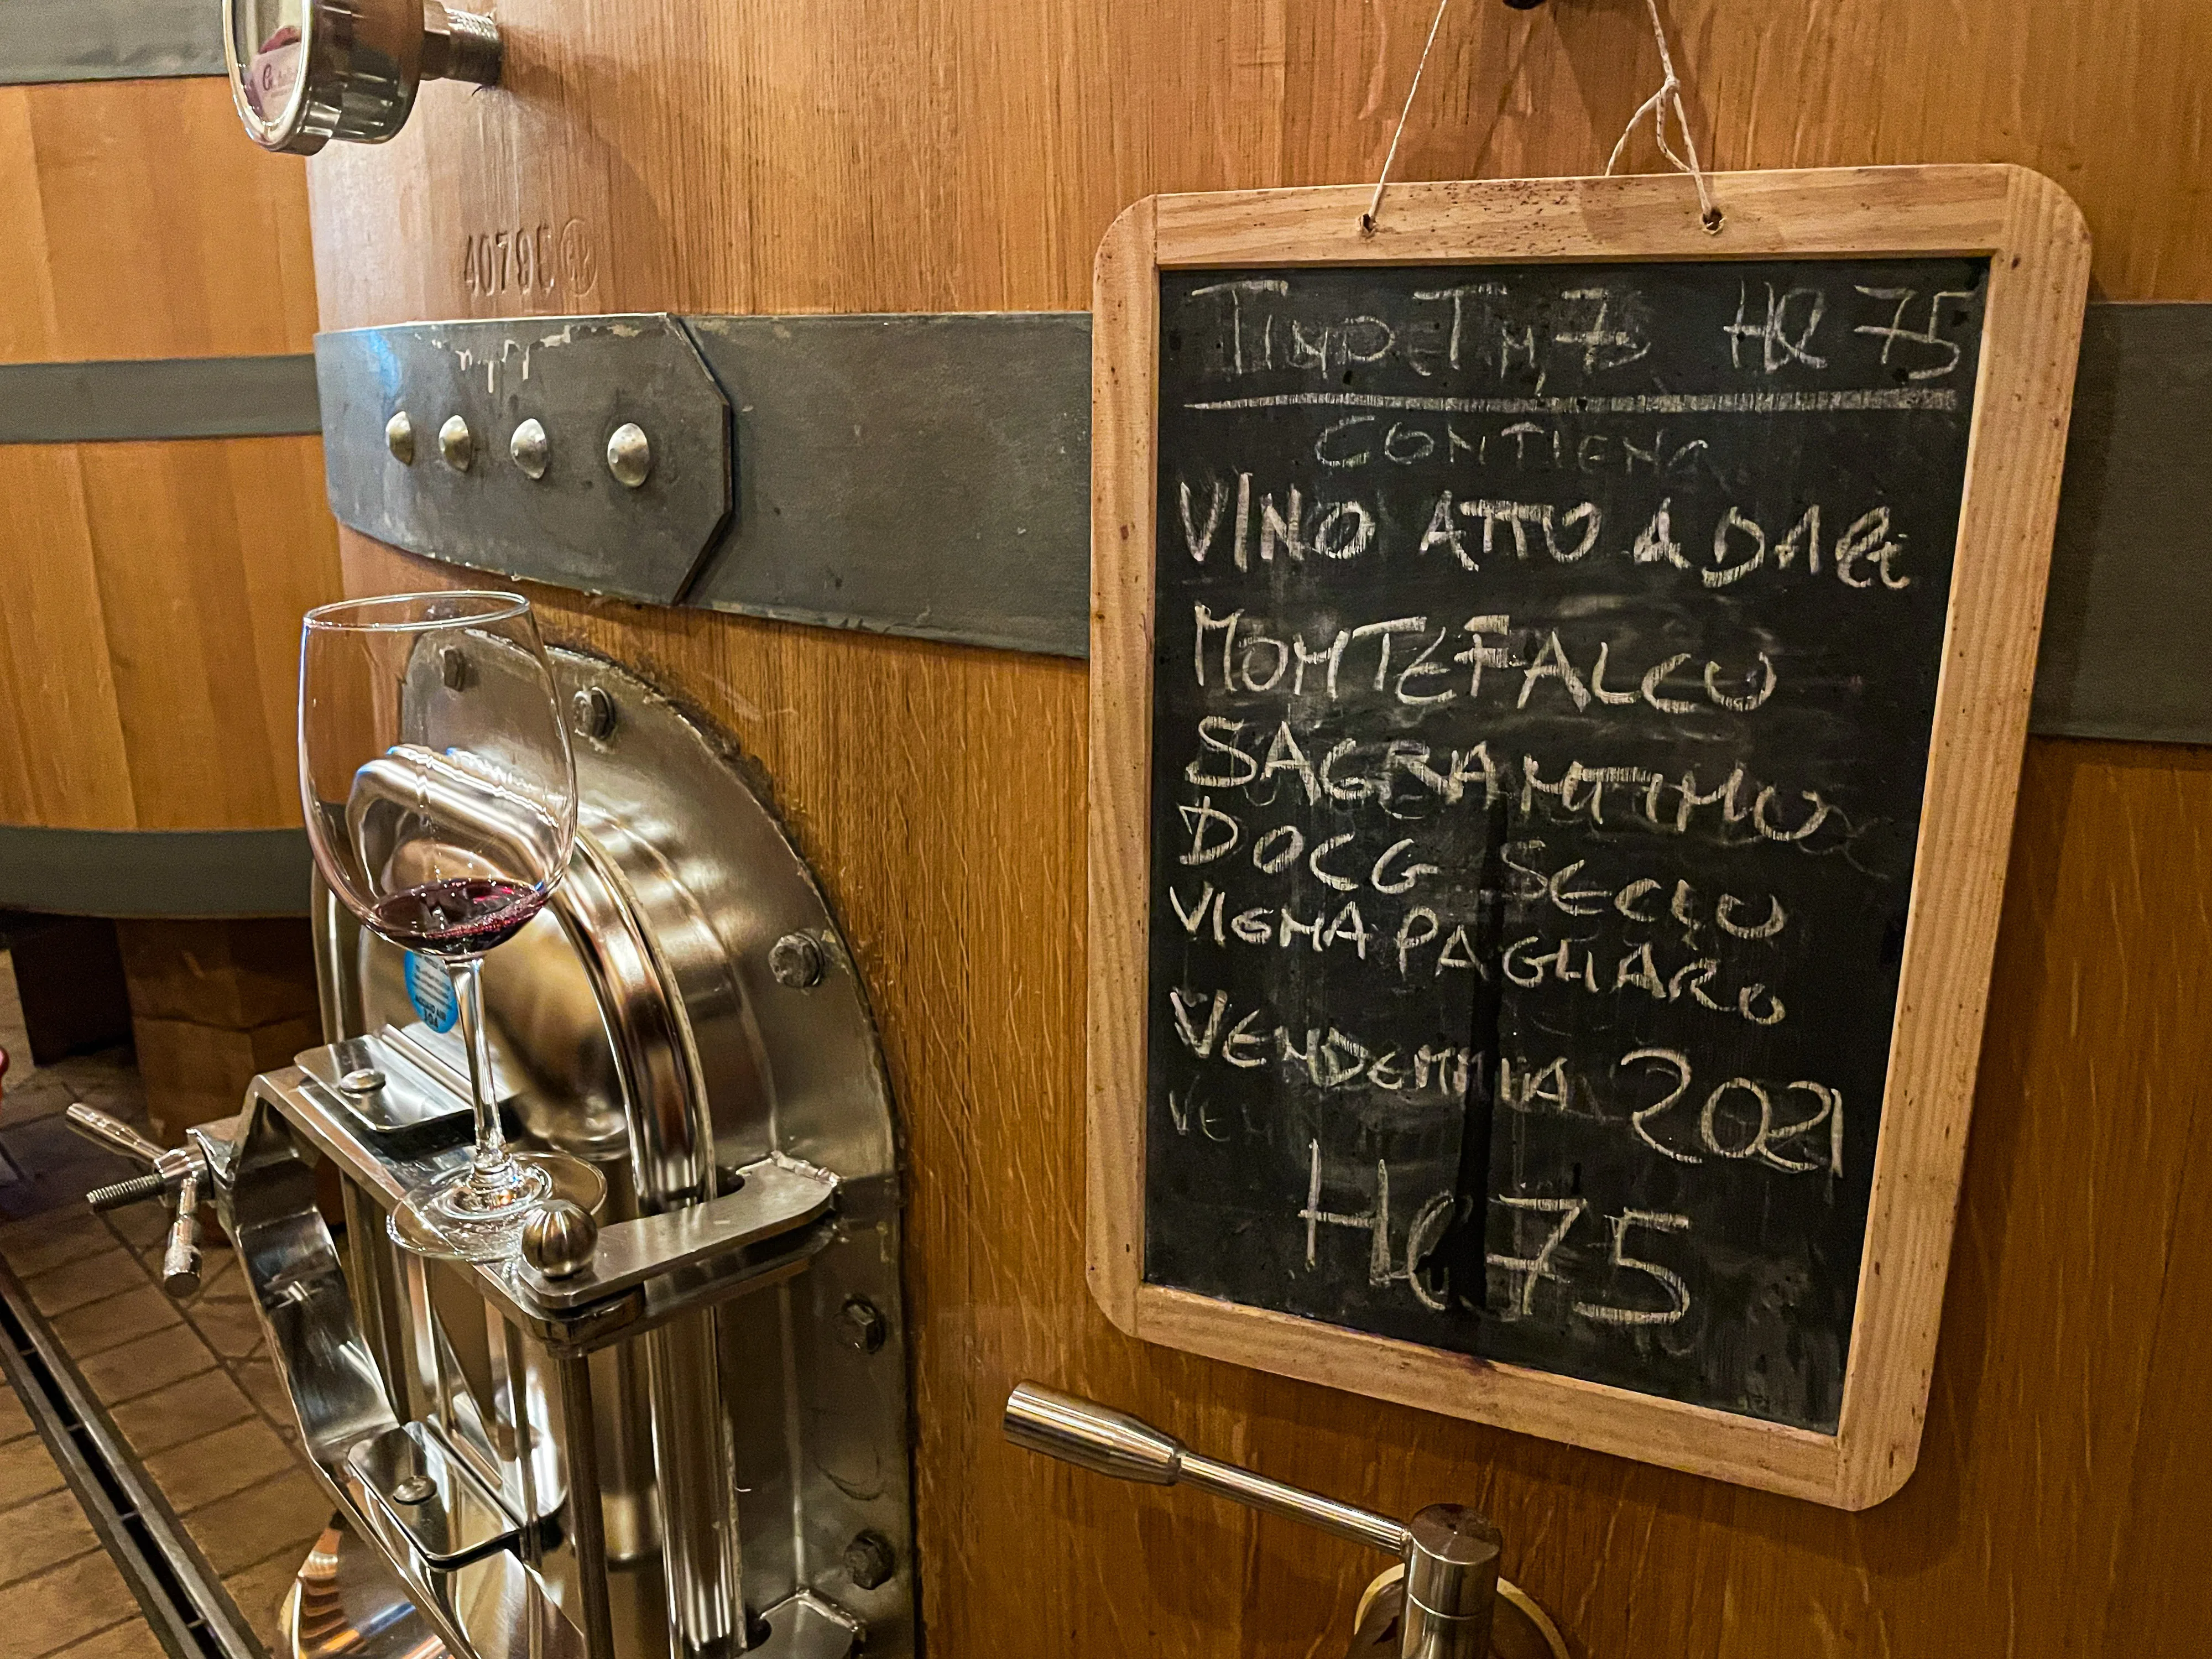 40790
TINO Hl 75
CONTIENE
VINO ATTO A DARE
MONTEFALCO
SAGRANTINO
DOCG SECCO
VIGNA PAGLIARO
VENDEMMIA 2021
VEN
Hl 75